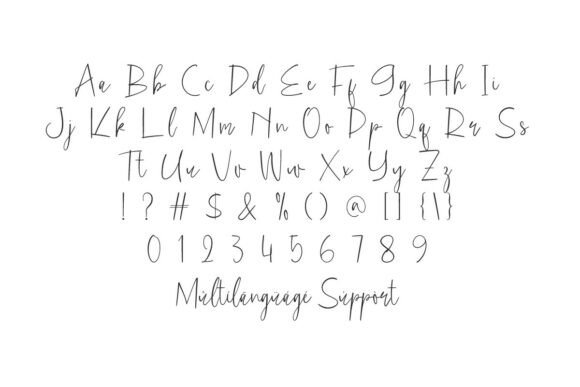 Aa Bb Cc Dd Ee Ff Gg Hh Ii
Jj Kk Ll Mm Nn Oo Pp Qq Rr Ss
Tt Uu Vv Ww Xx Yy Zz
! ? # $ & % () @ [] {\}
0 1 2 3 4 5 6 7 8 9
Múltilángüàgé Súppórt